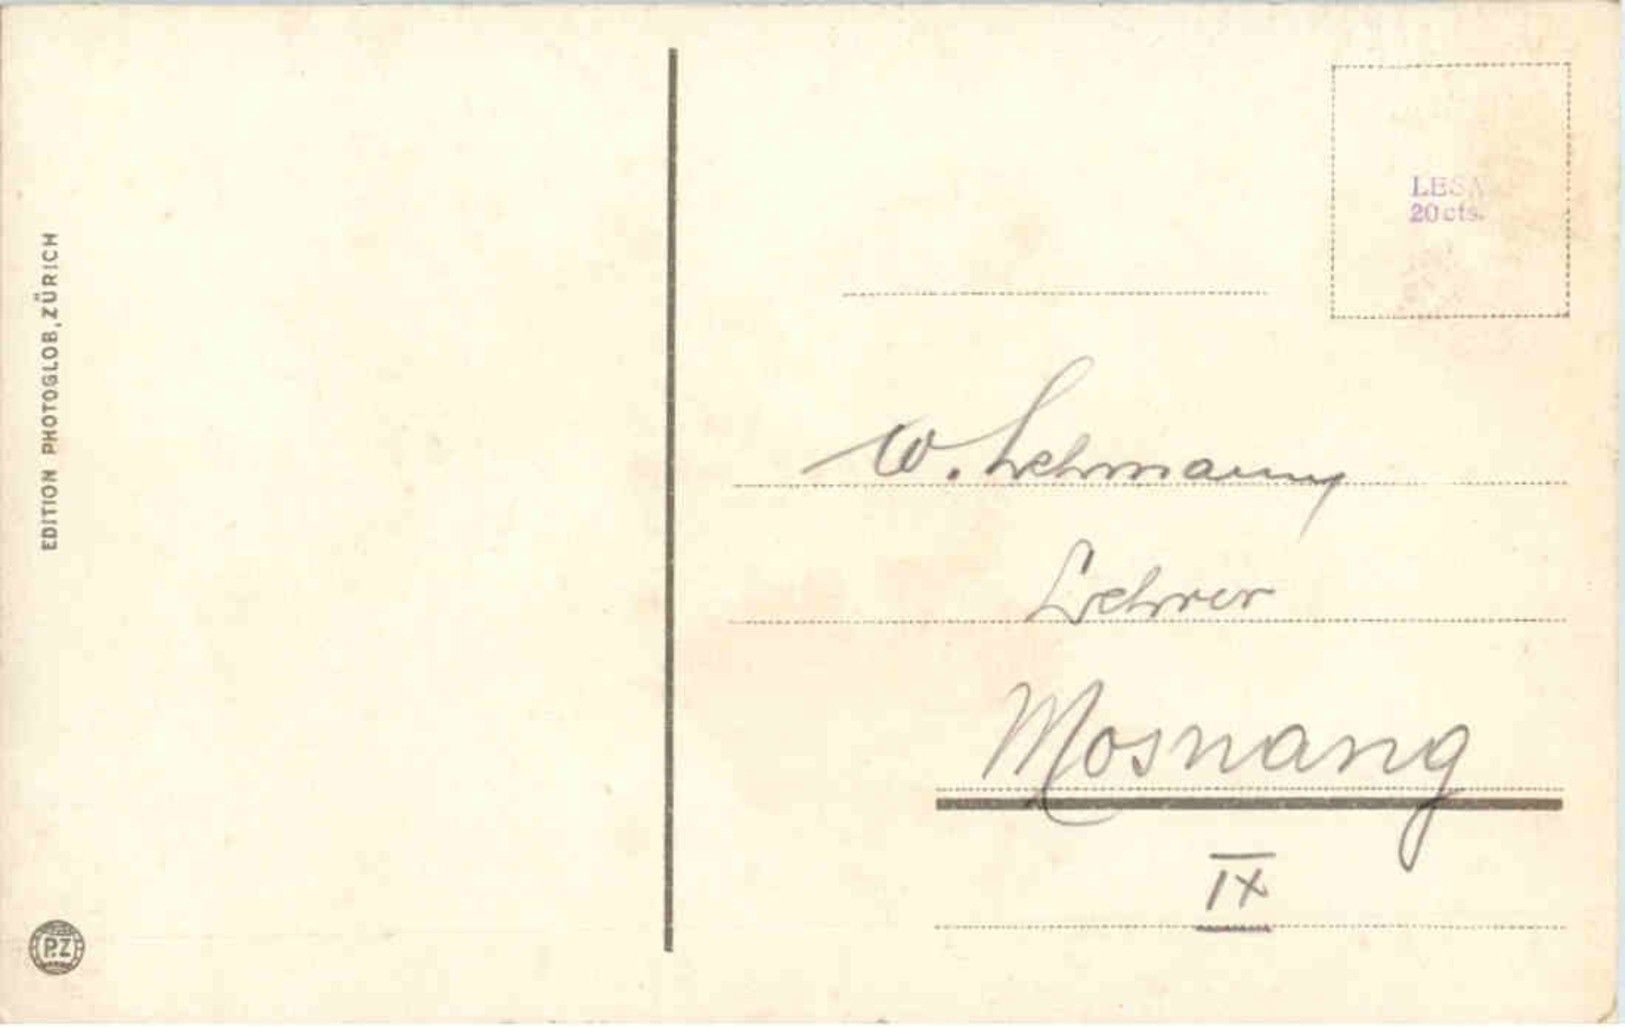 EDITION PHOTOGLOB, ZÜRICH
P.Z
LESA
20 cts.
W. Lehmann
Lehrer
Mosnang
IX